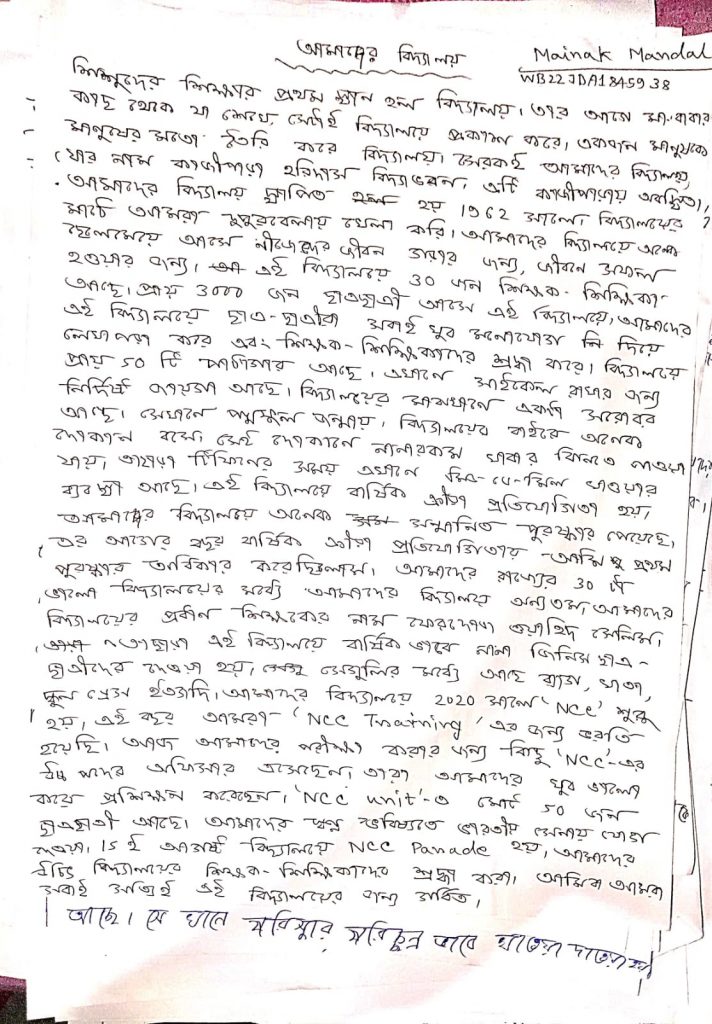 আমাদের বিদ্যালয়
Mainak Mandal
WB22JDA1845938
শিশুদের শিক্ষার প্রথম স্থান হল বিদ্যালয়। তার আগে মা-বাবার
কাছ থেকে যা শেখে সেটাই বিদ্যালয়ে প্রকাশ করে, একজন মানুষকে
মানুষের মতো তৈরি করে বিদ্যালয়। সেরকমই আমাদের বিদ্যালয়,
যার নাম কাজীপাড়া হরিদাস বিদ্যাভবন। এটি কাজীপাড়ায় অবস্থিত।
আমাদের বিদ্যালয় স্থাপিত হয় 1962 সালে। বিদ্যালয়ের
মাঠে আমরা দুপুরবেলায় খেলা করি। আমাদের বিদ্যালয়ে অনেক
ছেলেমেয়ে আসে নীজেদের জীবন গড়ার জন্য, জীবনে সফল
হওয়ার জন্য। এই বিদ্যালয়ে 30 জন শিক্ষক-শিক্ষিকা
আছে। প্রায় 3000 জন ছাত্রছাত্রী আসে এই বিদ্যালয়ে, আমাদের
এই বিদ্যালয়ে ছাত্র-ছাত্রীরা সবাই খুব মনোযোগ দিয়ে
লেখাপড়া করে এবং শিক্ষক-শিক্ষিকাদের শ্রদ্ধা করে। বিদ্যালয়ে
প্রায় 50 টি আছে। এখানে সাইকেল রাখার জন্য
নির্দিষ্ট জায়গা আছে। বিদ্যালয়ের মাঝখানে একটা সরোবর
আছে। সেখানে পদ্মফুল জন্মায়। বিদ্যালয়ের বাইরে অনেক
দোকান বসে। সেই দোকানে নানারকম খাবার কিনতে পাওয়া
যায়। তাছাড়া টিফিনের সময় এখানে মিড-ডে-মিল খাওয়ার
ব্যবস্থা আছে। এই বিদ্যালয়ে বার্ষিক ক্রীড়া প্রতিযোগিতা হয়,
আমাদের বিদ্যালয়ে অনেক সম্মানিত পুরষ্কার পেয়েছে।
এর আগের বছর বার্ষিক ক্রীড়া প্রতিযোগিতায় আমি প্রথম
পুরষ্কার অধিকার করেছিলাম। আমাদের রাজ্যের 30 টি
ভালো বিদ্যালয়ের মধ্যে আমাদের বিদ্যালয় অন্যতম। আমাদের
বিদ্যালয়ের প্রধান শিক্ষকের নাম ফেরদৌস ওয়াহিদ সেলিম।
এই বিদ্যালয়ে বার্ষিক ভাবে নানা জিনিস ছাত্র-
ছাত্রীদের দেওয়া হয়, সেগুলির মধ্যে আছে ব্যাগ, খাতা,
স্কুল ড্রেস ইত্যাদি। আমাদের বিদ্যালয়ে 2020 সালে 'NCC' শুরু
হয়, এই বছর আমরা 'NCC Training' এর জন্য ভরতি
হয়েছি। আজ আমাদের পরীক্ষা করার জন্য কিছু 'NCC'-এর
উচ্চ পদের অফিসার এসেছেন। তারা আমাদের খুব ভালো
করে প্রশিক্ষন করেছেন। 'NCC unit'-এ মোট 50 জন
ছাত্রছাত্রী আছে। আমাদের স্বপ্ন ভবিষ্যতে ভারতীয় সেনায় যোগ
দেওয়া। 15 ই আগষ্ট বিদ্যালয়ে NCC Parade হয়, আমাদের
উচিৎ বিদ্যালয়ের শিক্ষক-শিক্ষিকাদের শ্রদ্ধা করা। আমরা
সবাই সত্যিই এই বিদ্যালয়ের জন্য গর্বিত।
আছে। সে খানে পরিস্কার পরিচ্ছন্ন ভাবে খাওয়া দাওয়া হয়।